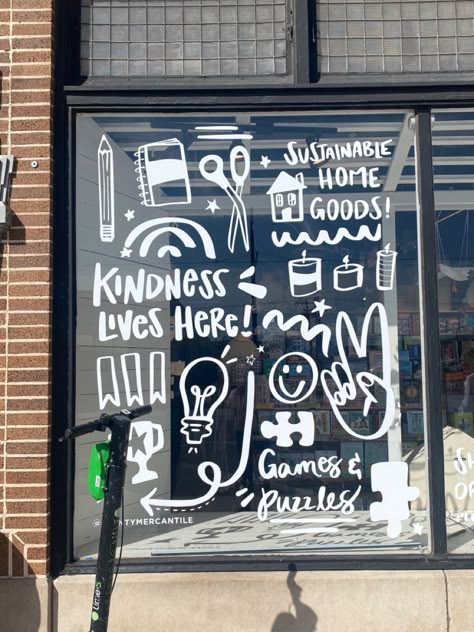 SUSTAINABLE
HOME
GOODS!
KINDNESS
LIVES HERE!
GAMES &
PUZZLES